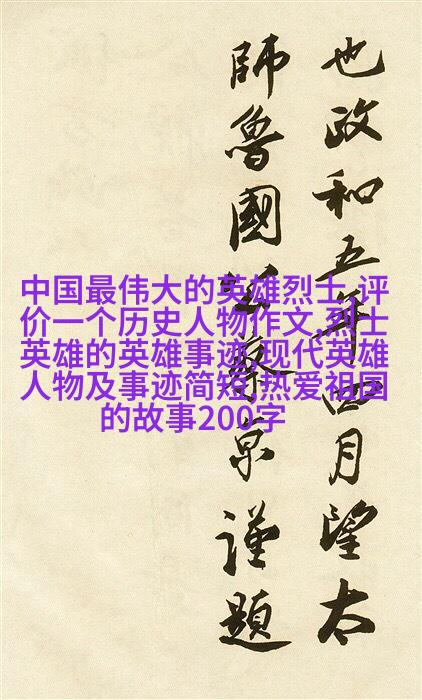 也政和五年四月望太
師魯國公蔡京謹題
中国最伟大的英雄烈士,评
价一个历史人物作文,烈士
英雄的英雄事迹,现代英雄
人物及事迹简短,热爱祖国
的故事200字